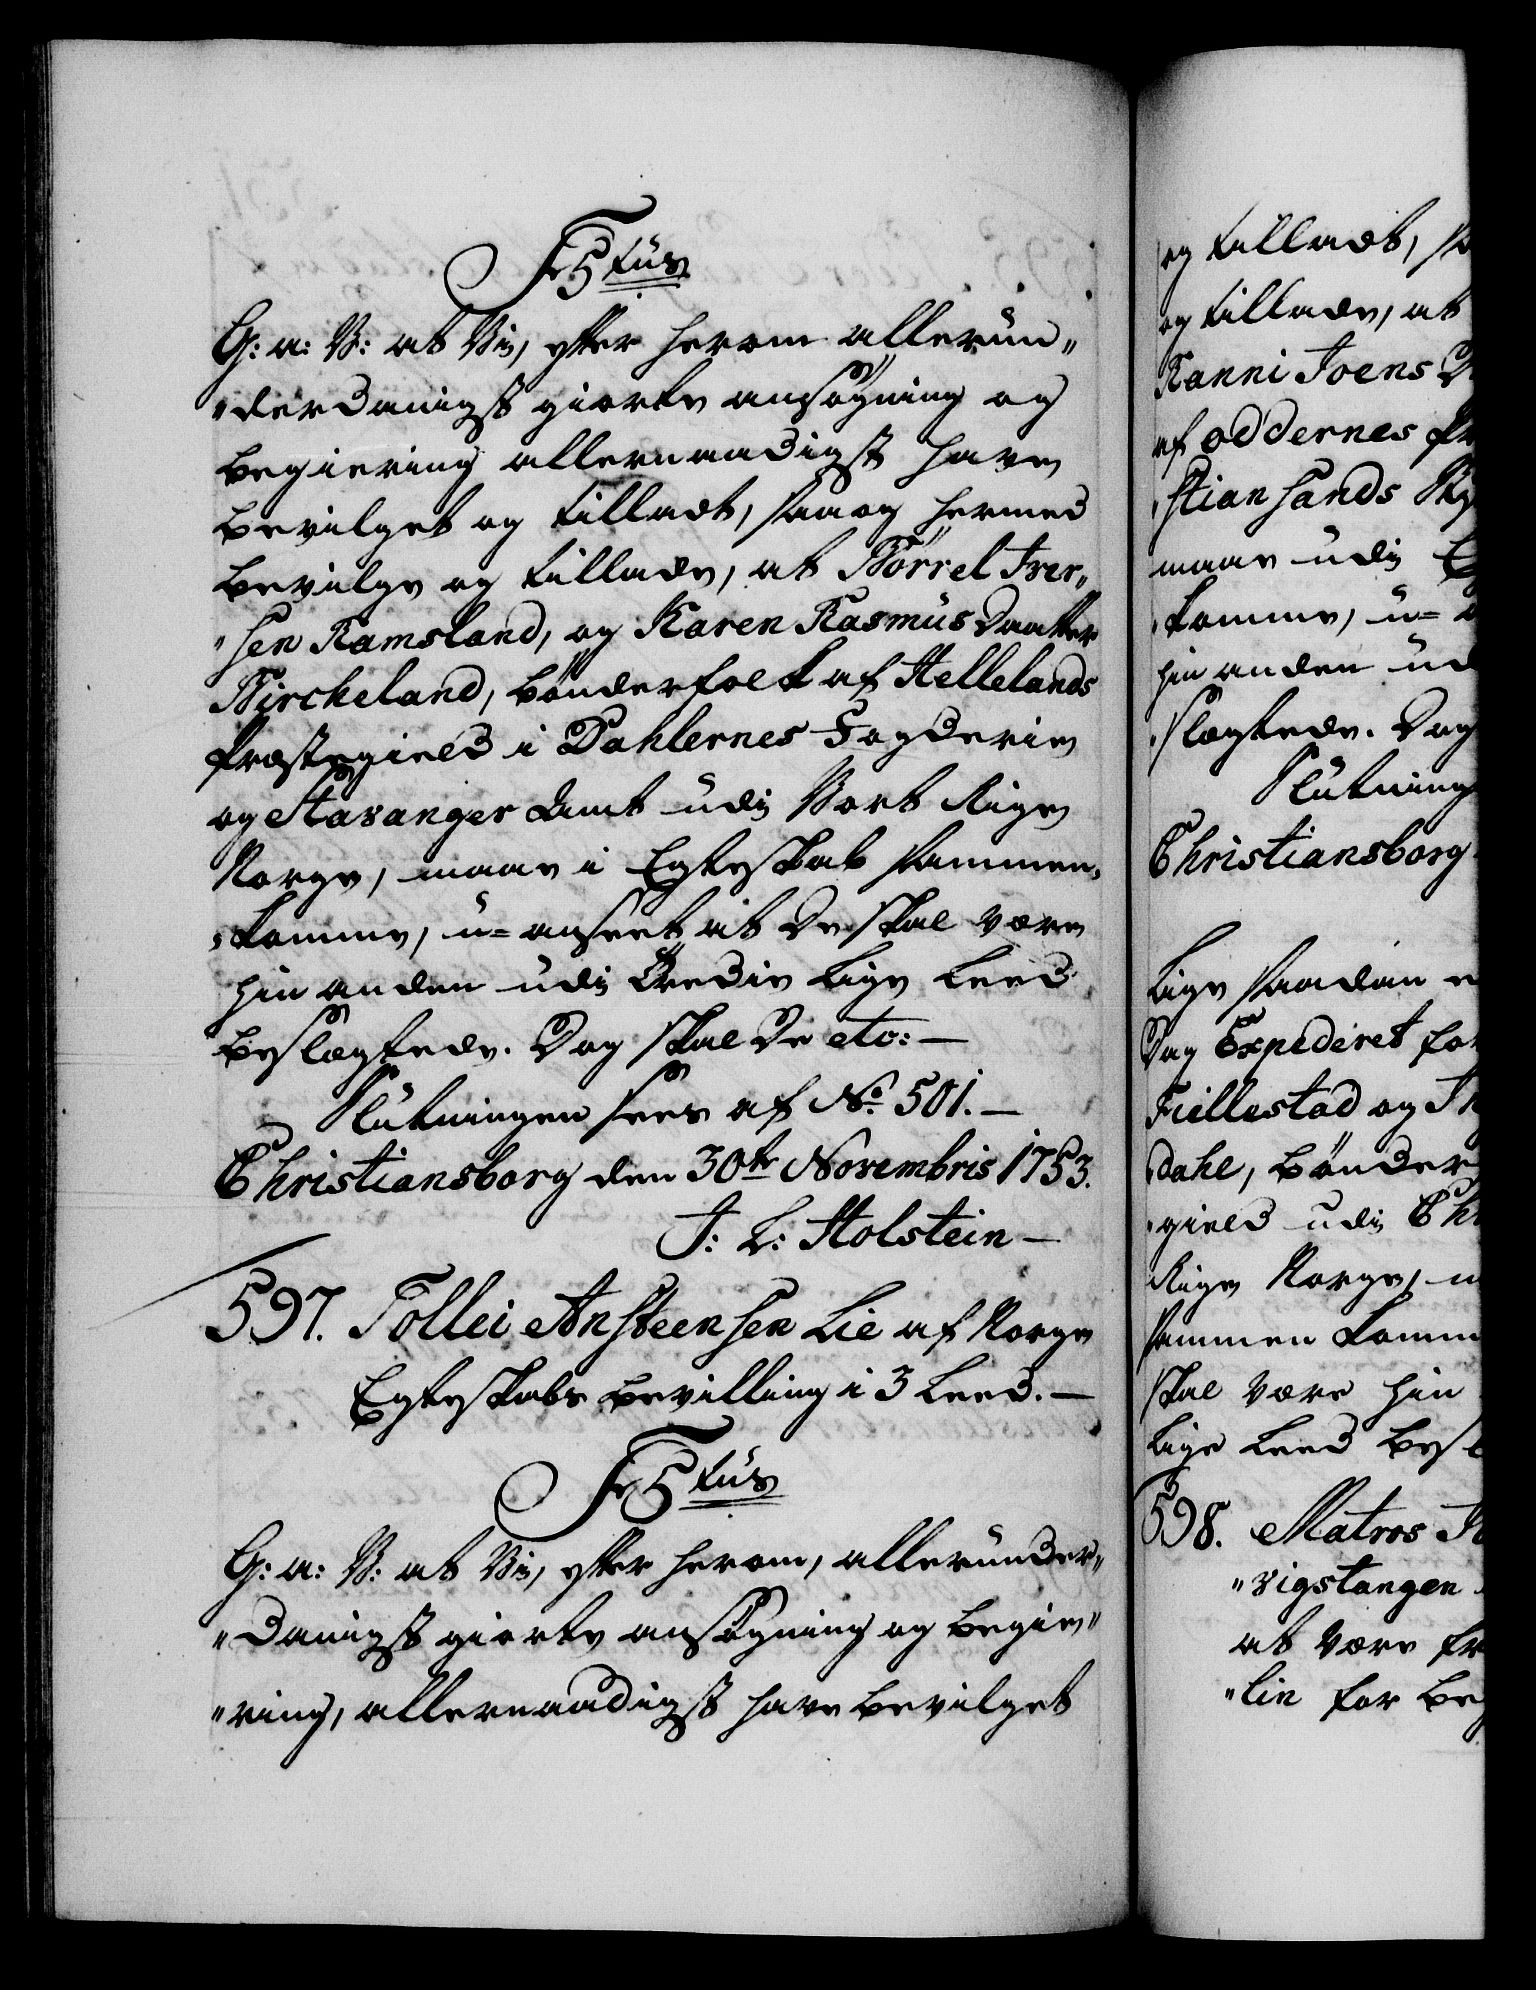 Fr 5 tus
G: a: V: at Vi, efter herom allerun„
„derdanigst giorte ansøgning og
begiering allernaadigst have
bevilget og tilladt, saa og hermed
bevilge og tillade, at Børrel Iver„
„sen Ramsland, og Karen Rasmus Daatter
Bircheland, bønderfolk af Hellelands
Præstegield i Dahlernes Fogderie
og Stavanger Amt udi Vort Rige
Norge, maae i Egteskab sammen„
„komme, u=anseet at De skal være
hinanden udi Tredie Lige Leed
beslægtede. Dog skal De etc: —
Slutningen sees af No. 501. —
Christiansborg den 30te Novembris 1753.
J: L: Holstein —
597. Tollei Ansteensen Lie af Norge
Egteskabs bevilling i 3 Leed. —
Fr 5 tus
G: a: V: at Vi, efter herom, allerunder„
„danigst giorte ansøgning og begie„
„ring, allernaadigst have bevilget
og tilladt,
og tillade, at
Joens
af Oddernes
„stiansands
maae udi
„komme, u=
hinanden
„slægtede. Dog
Slutning
Christiansborg
Lige saadan
Dag Expederet for
Fiellestad og
Dahl, bønder
„gield udi
Rige Norge,
sammen komme
skal være hin
Lige Leed
598. Matros
„vigstangen
at være
„lie for